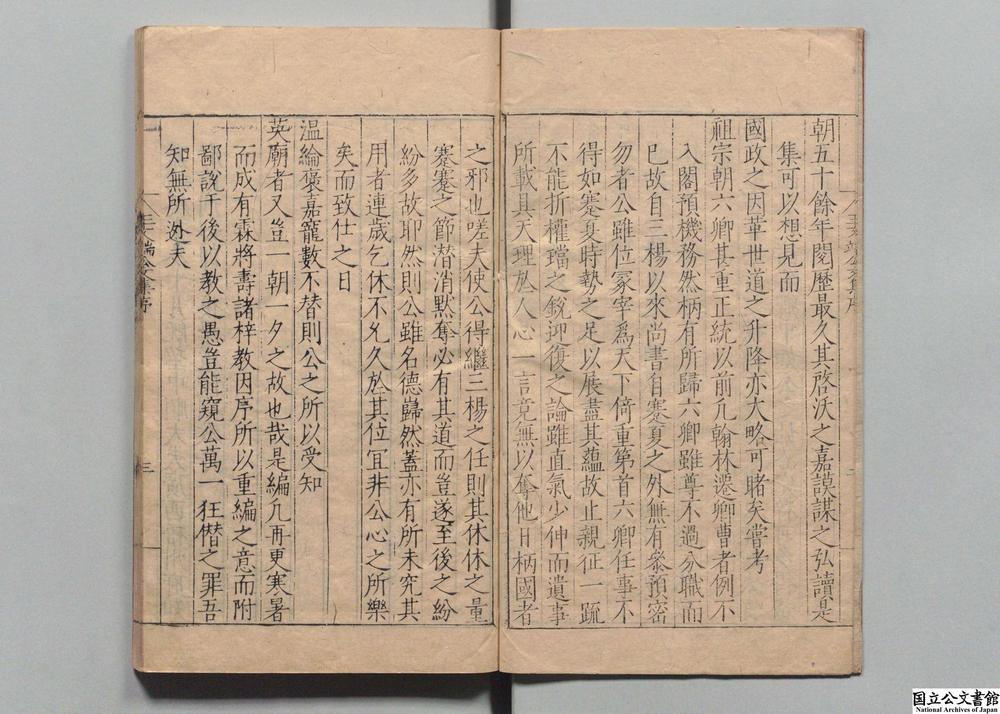 朝五十餘年閱歷最久其啓沃之嘉謨謀之弘讀是
集可以想見而
國政之因革世道之升降亦大略可睹矣嘗考
祖宗朝六卿甚重正統以前凡翰林遷卿曹者例不
入閣預機務然柄有所歸六卿雖尊不過分職而
已故自三楊以來尚書自蹇夏之外無有叅預密
勿者公雖位冢宰爲天下倚重第首六卿任事不
得如蹇夏時勢之足以展盡其蘊故止親征一疏
不能折權璫之銳迎復之論雖直氣少伸而遺事
所載其天理於人心一言竟無以奪他日柄國者
之邪也嗟夫使公得繼三楊之任則其休休之量
蹇蹇之節潜消黙奪必有其道而豈遂至後之紛
紛多故耶然則公雖名德巋然蓋亦有所未究其
用者連歲乞休不允久於其位冝非公心之所樂
矣而致仕之日
温綸褒嘉寵數不替則公之所以受知
英廟者又豈一朝一夕之故也哉是編凡再更寒暑
而成有霖將壽諸梓教因序所以重編之意而附
鄙說于後以教之愚豈能窺公萬一狂僣之罪吾
知無所逃夫
王文端公文集序
三
国立公文書館
National Archives of Japan